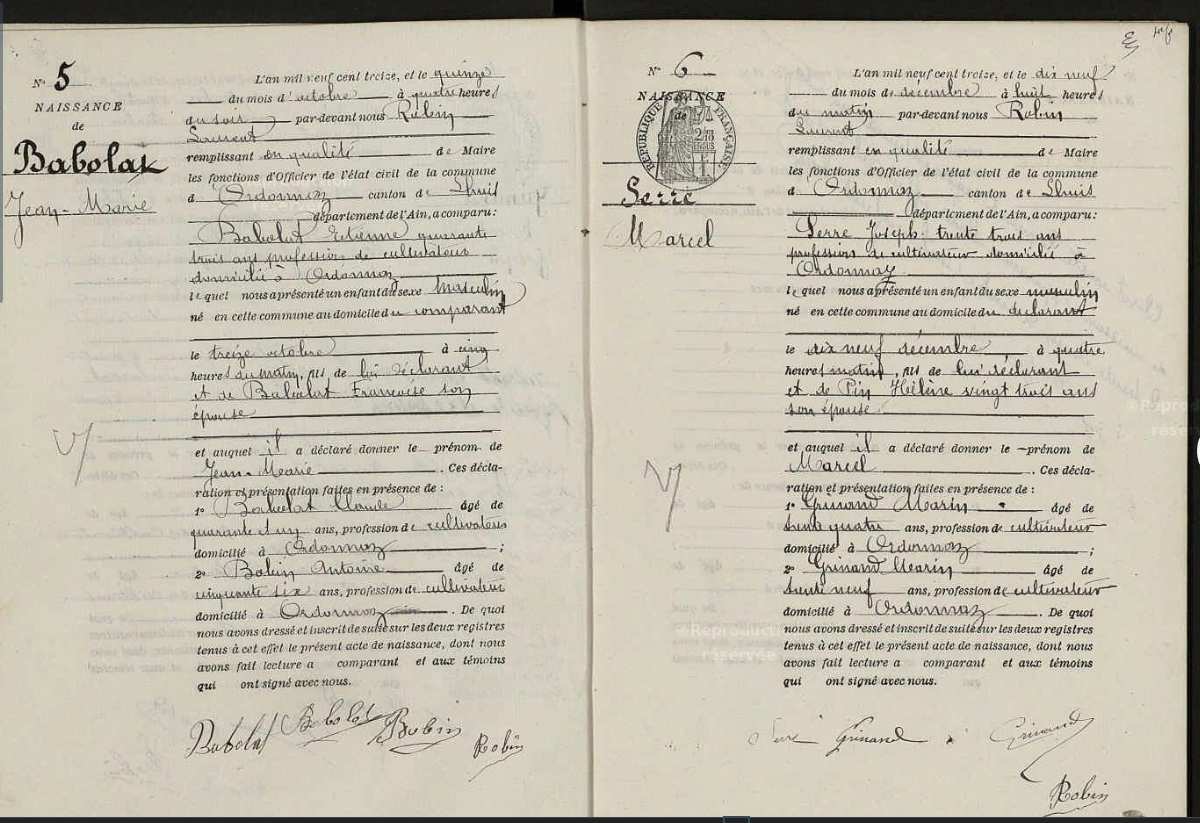 N° 5
NAISSANCE
de
Babolat
Jean-Marie
L'an mil neuf cent treize, et le quinze
du mois d'octobre à quatre heures
du soir par-devant nous Robin
Laurent
remplissant en qualité de Maire
les fonctions d'Officier de l'état civil de la commune
d Ordonnaz canton de Lhuis
département de l'Ain, a comparu:
Babolat Etienne quarante
trois ans profession de cultivateur
domicilié à Ordonnaz
lequel nous a présenté un enfant du sexe masculin
né en cette commune au domicile du comparant
le treize octobre à cinq
heures du matin, fils de lui déclarant
et de Babolat Françoise son
épouse
et auquel il a déclaré donner le prénom de
Jean-Marie. Ces décla-
ration et présentation faites en présence de :
1° Babolat Claude âgé de
quarante et un ans, profession de cultivateur
domicilié à Ordonnaz ;
2° Robin Antoine âgé de
cinquante six ans, profession de cultivateur
domicilié à Ordonnaz. De quoi
nous avons dressé et inscrit de suite sur les deux registres
tenus à cet effet le présent acte de naissance, dont nous
avons fait lecture a comparant et aux témoins
qui ont signé avec nous.
Babolat Babolat Robin Robin
N° 6
NAISSANCE
de
RÉPUBLIQUE FRANÇAISE
Serre
Marcel
L'an mil neuf cent treize, et le dix neuf
du mois de décembre à huit heures
du matin par-devant nous Robin
Laurent
remplissant en qualité de Maire
les fonctions d'Officier de l'état civil de la commune
d Ordonnaz canton de Lhuis
département de l'Ain, a comparu:
Serre Joseph trente trois ans
profession de cultivateur domicilié à
Ordonnaz
lequel nous a présenté un enfant du sexe masculin
né en cette commune au domicile du déclarant
le dix neuf décembre à quatre
heures matin, fils de lui déclarant
et de Pin Hélène vingt trois ans
son épouse
et auquel il a déclaré donner le prénom de
Marcel. Ces décla-
ration et présentation faites en présence de :
1° Grinand Marin âgé de
trente quatre ans, profession de cultivateur
domicilié à Ordonnaz ;
2° Grinand Marin âgé de
trente neuf ans, profession de cultivateur
domicilié à Ordonnaz. De quoi
nous avons dressé et inscrit de suite sur les deux registres
tenus à cet effet le présent acte de naissance, dont nous
avons fait lecture a comparant et aux témoins
qui ont signé avec nous.
Serre Grinand Grinand
Robin